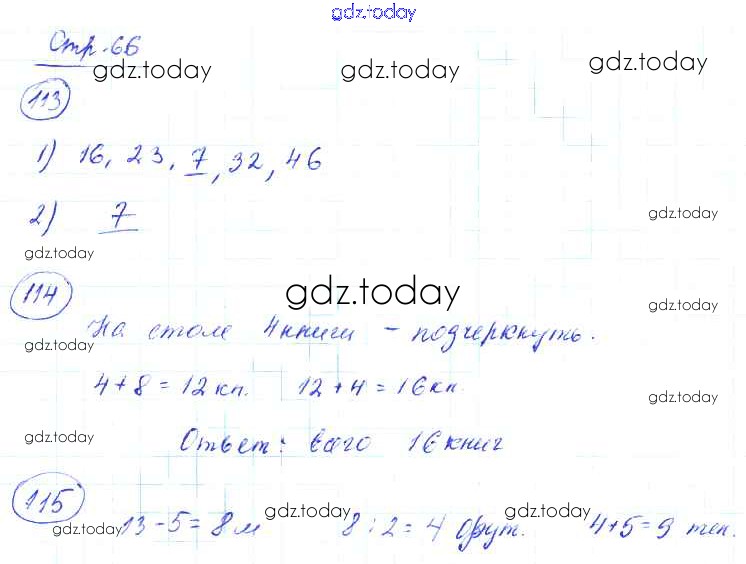 gdz.today
Стр. 66
gdz.today gdz.today gdz.today
113
1) 16, 23, 7, 32, 46
gdz.today
2) 7
gdz.today
114 gdz.today gdz.today
На столе 4 книги – подчеркнуть.
gdz.today
4 + 8 = 12 кн. 12 + 4 = 16 кн.
gdz.today
gdz.today
Ответ: всего 16 книг
115
13 - 5 = 8 м 8 : 2 = 4 фут. 4 + 5 = 9 тен.
gdz.today gdz.today gdz.today gdz.today